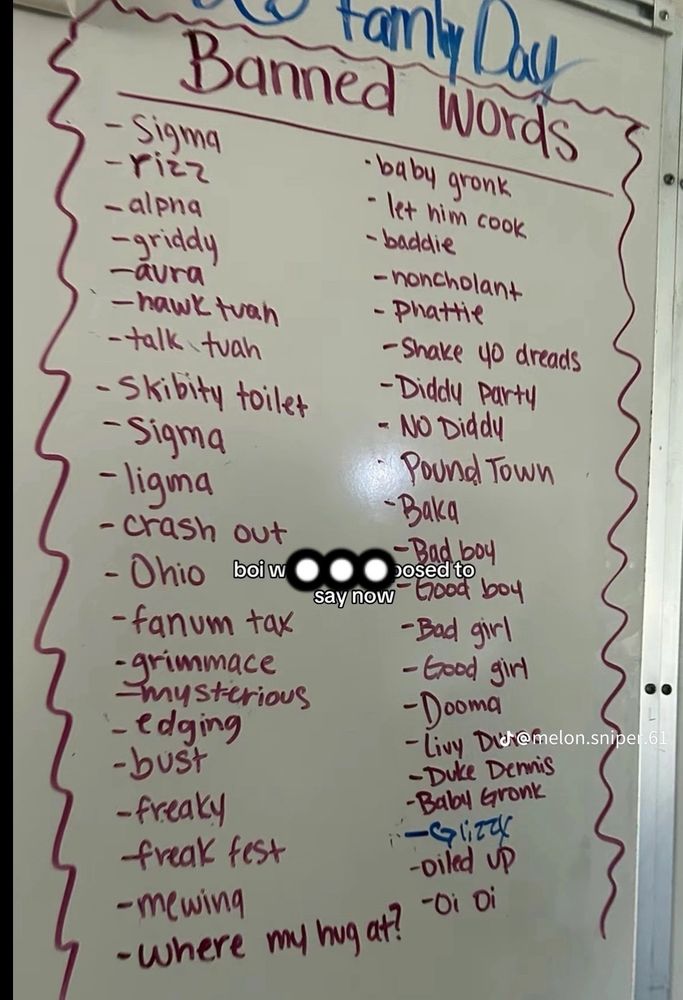 Family Day
Banned Words
- Sigma
- rizz
- alpha
- griddy
- aura
- hawk tuah
- talk tuah
- Skibity toilet
- Sigma
- ligma
- crash out
- Ohio
- fanum tax
- grimmace
- mysterious
- edging
- bust
- freaky
- freak fest
- mewing
- where my hug at?
- baby gronk
- let him cook
- baddie
- noncholant
- Phattie
- Shake yo dreads
- Diddy Party
- NO Diddy
- Pound Town
- Baka
- Bad boy
- Good boy
- Bad girl
- Good girl
- Dooma
- Livy
- Duke Dennis
- Baby Gronk
- Glizzy
- oiled up
- oi oi
boi w posed to
say now
@melon.sniper.61